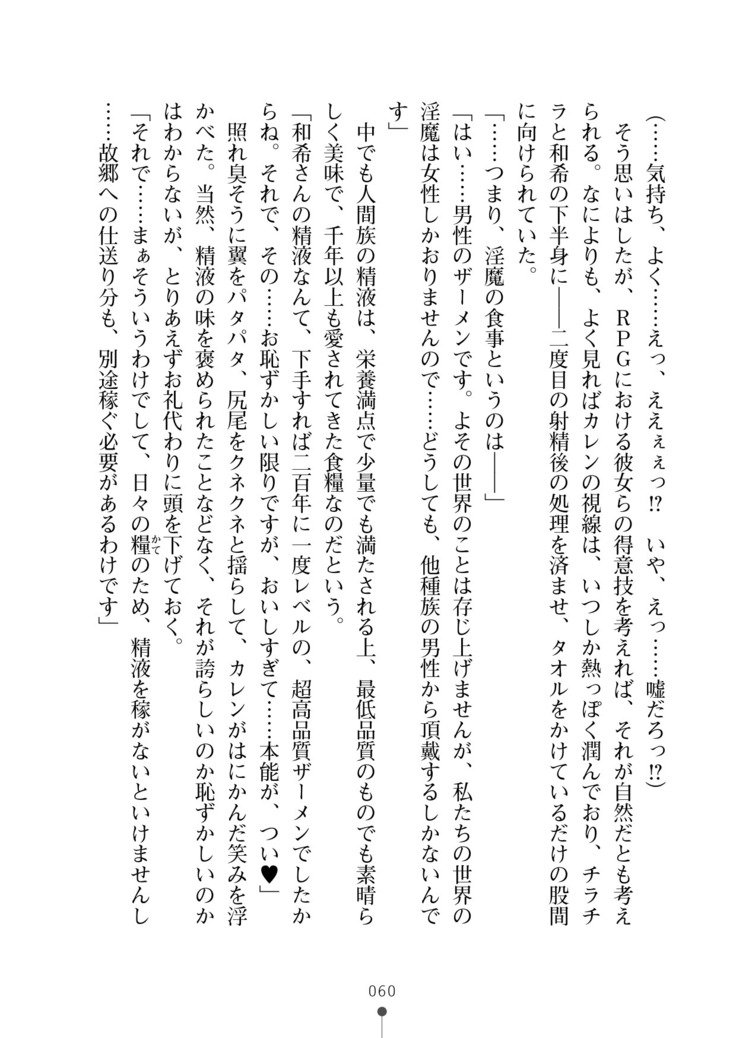 (……気持ち、よく……えっ、ええぇぇっ!?　いや、えっ……嘘だろっ!?)
　そう思いはしたが、ＲＰＧにおける彼女らの得意技を考えれば、それが自然だとも考え
られる。なによりも、よく見ればカレンの視線は、いつしか熱っぽく潤んでおり、チラチ
ラと和希の下半身に――二度目の射精後の処理を済ませ、タオルをかけているだけの股間
に向けられていた。
「……つまり、淫魔の食事というのは――」
「はい……男性のザーメンです。よその世界のことは存じ上げませんが、私たちの世界の
淫魔は女性しかおりませんので……どうしても、他種族の男性から頂戴するしかないんで
す」
　中でも人間族の精液は、栄養満点で少量でも満たされる上、最低品質のものでも素晴ら
しく美味で、千年以上も愛されてきた食糧なのだという。
「和希さんの精液なんて、下手すれば二百年に一度レベルの、超高品質ザーメンでしたか
らね。それで、その……お恥ずかしい限りですが、おいしすぎて……本能が、つい♥」
　照れ臭そうに翼をパタパタ、尻尾をクネクネと揺らして、カレンがはにかんだ笑みを浮
かべた。当然、精液の味を褒められたことなどなく、それが誇らしいのか恥ずかしいのか
はわからないが、とりあえずお礼代わりに頭を下げておく。
「それで……まぁそういうわけでして、日々の糧かてのため、精液を稼がないといけませんし
……故郷への仕送り分も、別途稼ぐ必要があるわけです」
060